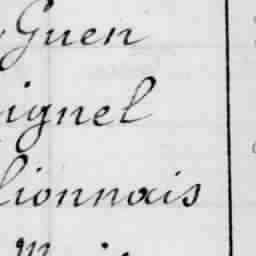 Guen
ignel
lionnais